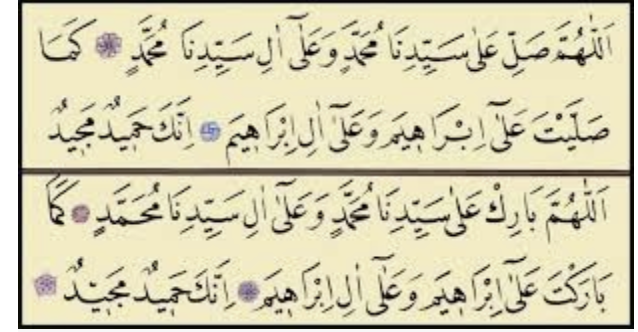 اَللّٰهُمَّ صَلِّ عَلٰى سَيِّدِنَا مُحَمَّدٍ وَعَلٰٓى اٰلِ سَيِّدِنَا مُحَمَّدٍ ۞ كَمَا
صَلَّيْتَ عَلٰٓى اِبْرَاهِيمَ وَعَلٰٓى اٰلِ اِبْرَاهِيمَ ۞ اِنَّكَ حَمِيدٌ مَجِيدٌ
اَللّٰهُمَّ بَارِكْ عَلٰى سَيِّدِنَا مُحَمَّدٍ وَعَلٰٓى اٰلِ سَيِّدِنَا مُحَمَّدٍ ۞ كَمَا
بَارَكْتَ عَلٰٓى اِبْرَاهِيمَ وَعَلٰٓى اٰلِ اِبْرَاهِيمَ ۞ اِنَّكَ حَمِيدٌ مَجِيدٌ ۞